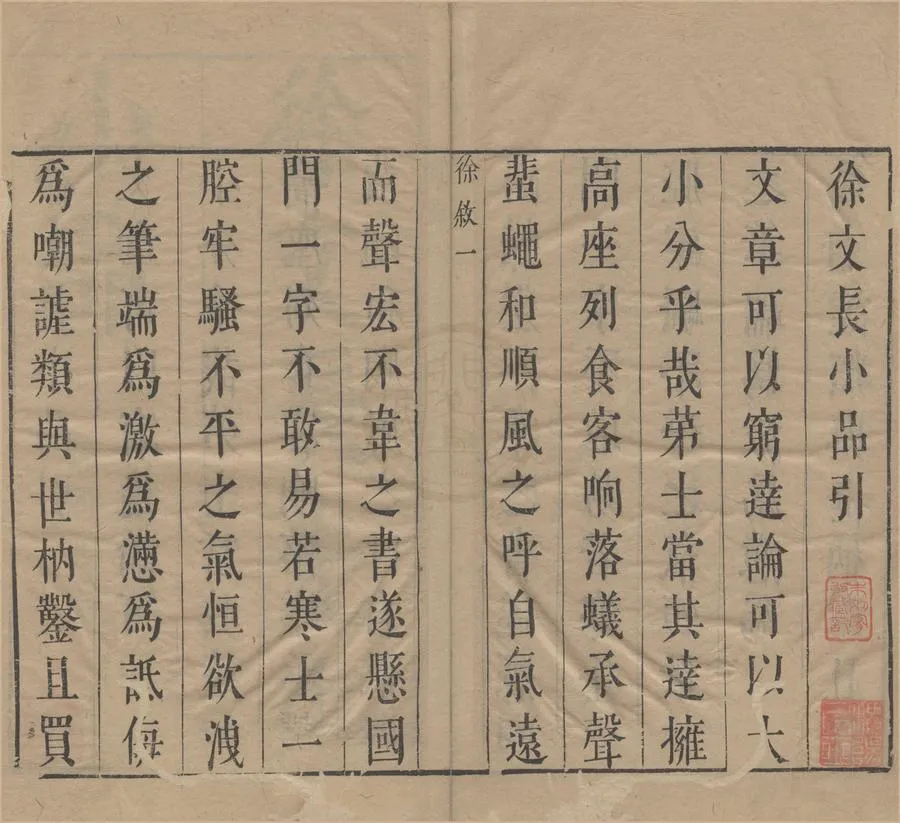 徐文長小品引
文章可以窮逹論可以大
小分乎哉苐士當其逹擁
高座列食客响落蟻承聲
蜚蠅和順風之呼自氣遠
徐敘一
而聲宏不韋之書遂懸國
門一字不敢易若寒士一
腔牢騷不平之氣恒欲洩
之筆端爲激爲懣爲詆侮
爲嘲謔類與世枘鑿且買